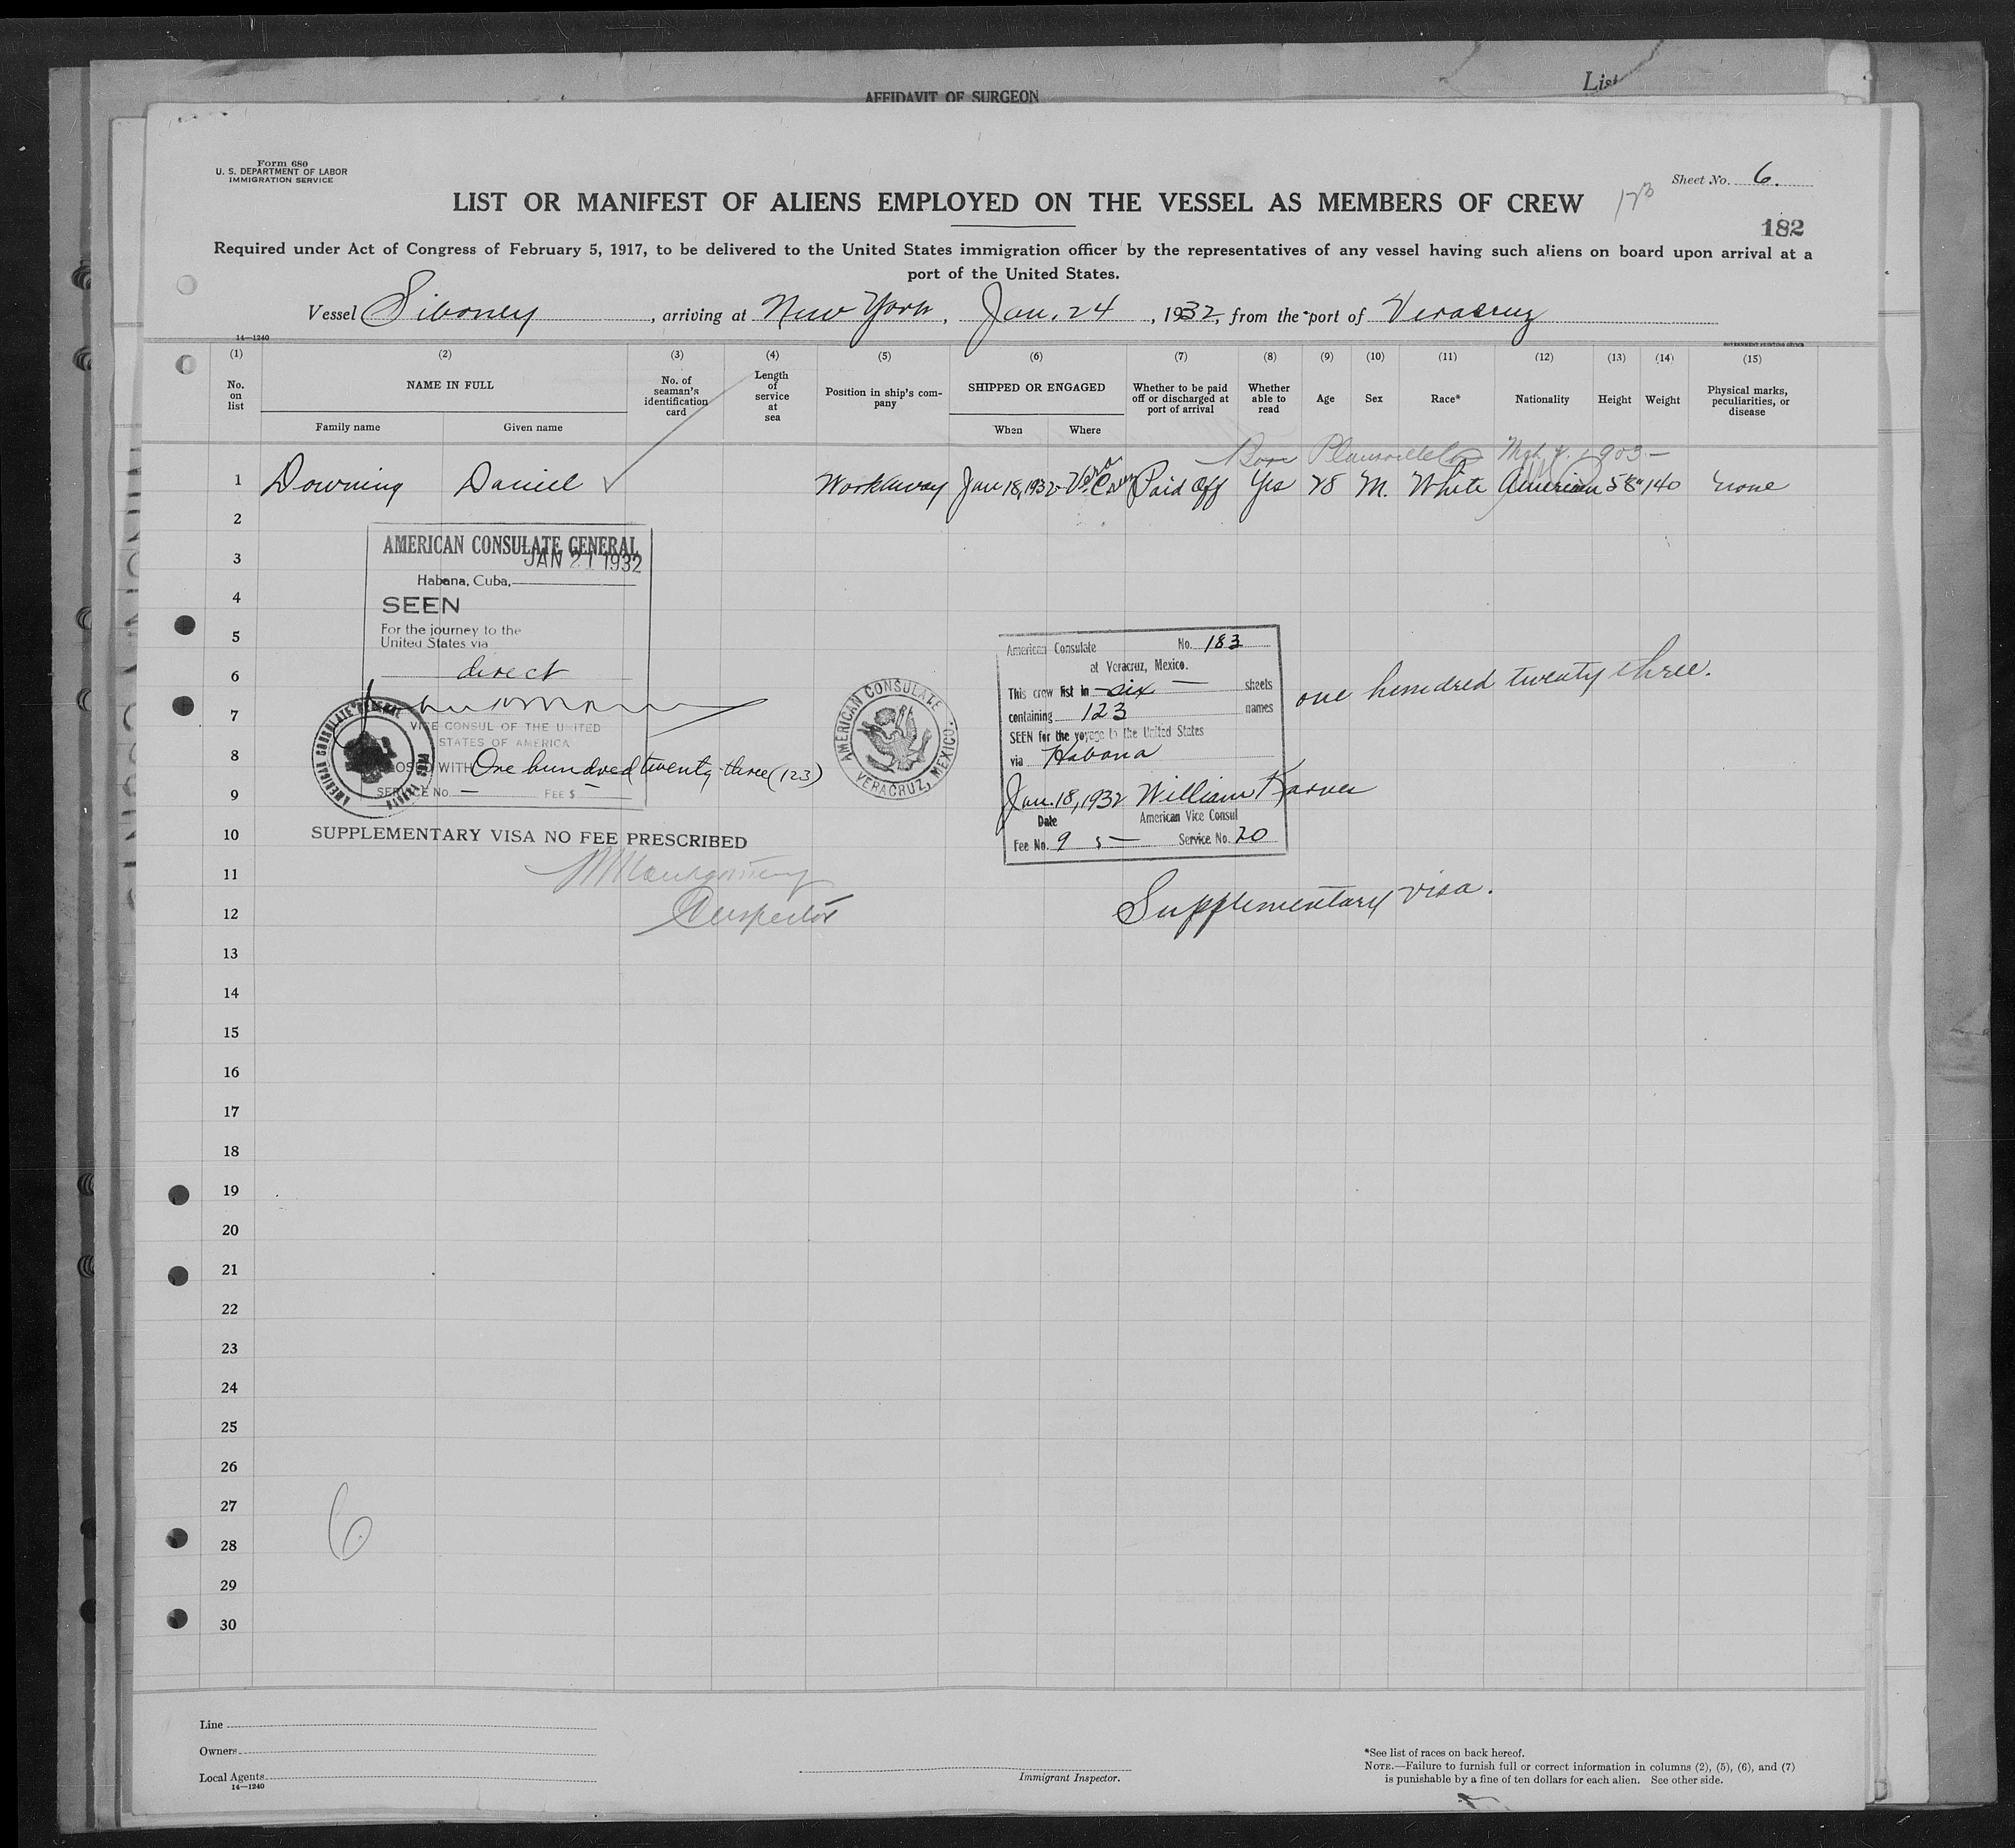 AFFIDAVIT OF SURGEON
List
Form 680
U. S. DEPARTMENT OF LABOR
IMMIGRATION SERVICE
Sheet No. 6.
LIST OR MANIFEST OF ALIENS EMPLOYED ON THE VESSEL AS MEMBERS OF CREW
182
Required under Act of Congress of February 5, 1917, to be delivered to the United States immigration officer by the representatives of any vessel having such aliens on board upon arrival at a
port of the United States.
Vessel Siboney, arriving at New York, Jan. 24, 1932, from the port of Veracruz
14—1240
GOVERNMENT PRINTING OFFICE
(1) (2) (3) (4) (5) (6) (7) (8) (9) (10) (11) (12) (13) (14) (15)
No. on list
NAME IN FULL
Family name
Given name
No. of seaman's identification card
Length of service at sea
Position in ship's company
SHIPPED OR ENGAGED
When
Where
Whether to be paid off or discharged at port of arrival
Whether able to read
Age
Sex
Race*
Nationality
Height
Weight
Physical marks, peculiarities, or disease
Born
1 Downing Daniel Workaway Jan 18, 1932 Vera Cruz Paid Off Yes 28 M. White American 5'8" 140 none
2
3
4
5
6
7
8
9
10
11
12
13
14
15
16
17
18
19
20
21
22
23
24
25
26
27
28
29
30
AMERICAN CONSULATE GENERAL
JAN 21 1932
Habana, Cuba,
SEEN
For the journey to the
United States via
direct
VICE CONSUL OF THE UNITED
STATES OF AMERICA
WITH One hundred twenty-three (123)
SERVICE No. — FEE $ —
AMERICAN CONSULATE GENERAL
SUPPLEMENTARY VISA NO FEE PRESCRIBED
Montgomery
Inspector
AMERICAN CONSULATE
VERACRUZ, MEXICO.
American Consulate No. 183
at Veracruz, Mexico.
This crew list in — six — sheets
containing 123 names
one hundred twenty three.
SEEN for the voyage to the United States
via Habana
Jan. 18, 1932 William Karnes
Date American Vice Consul
Fee No. 9 5— Service No. 20
Supplementary visa.
6
Line
Owners
Local Agents
14—1240
Immigrant Inspector.
*See list of races on back hereof.
NOTE.—Failure to furnish full or correct information in columns (2), (5), (6), and (7)
is punishable by a fine of ten dollars for each alien. See other side.